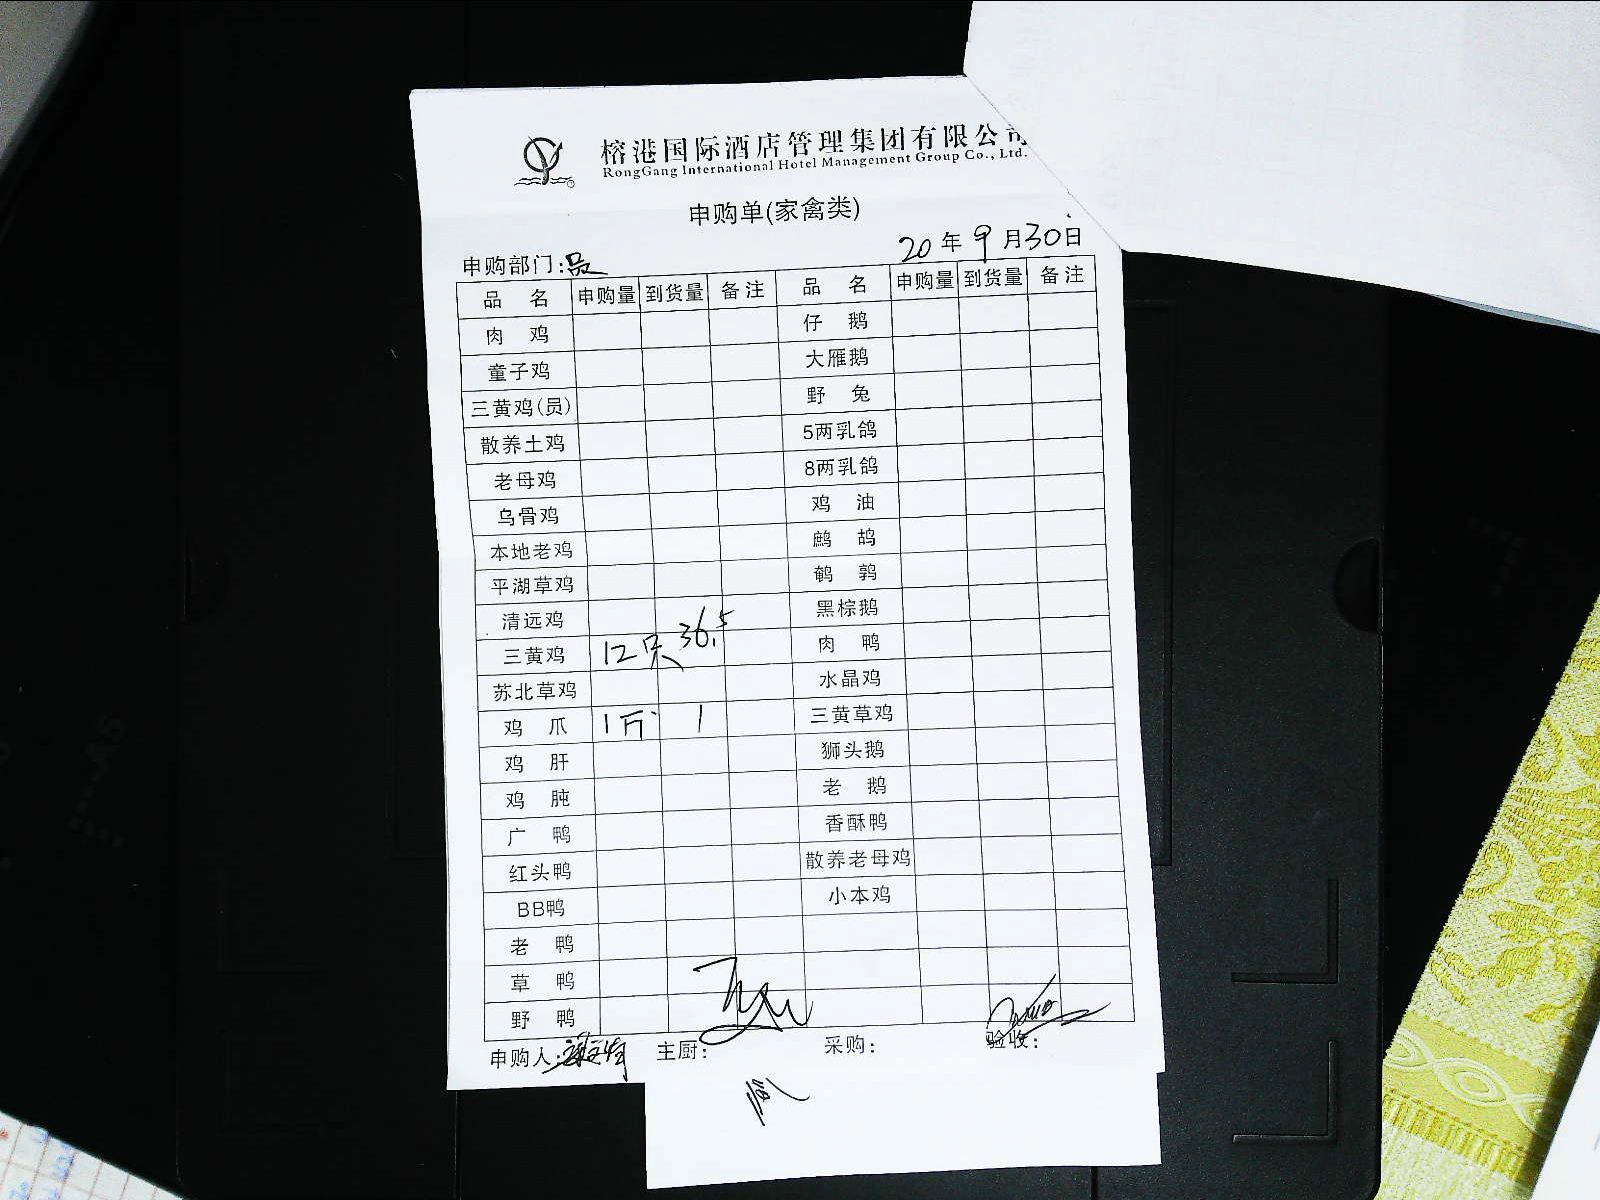 榕港国际酒店管理集团有限公司
RongGang International Hotel Management Group Co., Ltd.
申购单(家禽类)
申购部门: 20年9月30日
品名 申购量 到货量 备注 品名 申购量 到货量 备注
肉鸡 仔鹅
童子鸡 大雁鹅
三黄鸡(员) 野兔
散养土鸡 5两乳鸽
老母鸡 8两乳鸽
乌骨鸡 鸡油
本地老鸡 鹧鸪
平湖草鸡 鹌鹑
清远鸡 黑棕鹅
三黄鸡 12只 36.5 肉鸭
苏北草鸡 水晶鸡
鸡爪 1斤 1 三黄草鸡
鸡肝 狮头鹅
鸡肫 老鹅
广鸭 香酥鸭
红头鸭 散养老母鸡
BB鸭 小本鸡
老鸭
草鸭
野鸭
申购人: 主厨: 采购: 验收: